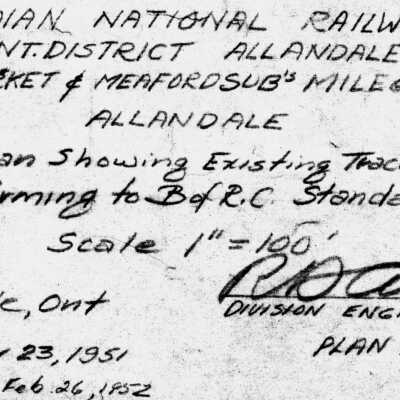 DIAN NATIONAL RAILW
NT. DISTRICT ALLANDALE
KET & MEAFORD SUB'S MILE
ALLANDALE
an Showing Existing Trac
rming to B of R.C. Standa
Scale 1" = 100'
e, Ont
DIVISION ENG
23, 1951
PLAN
Feb. 26, 1952